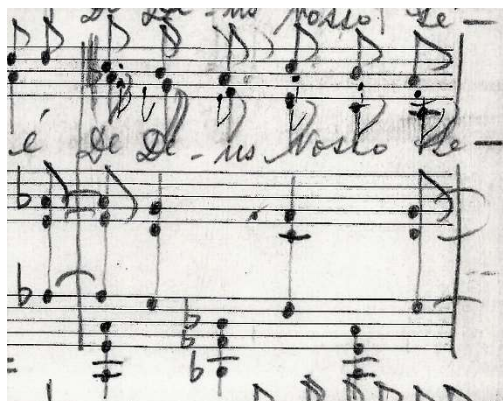 De De - us Nosso Se -
é De De - us Nosso Se -